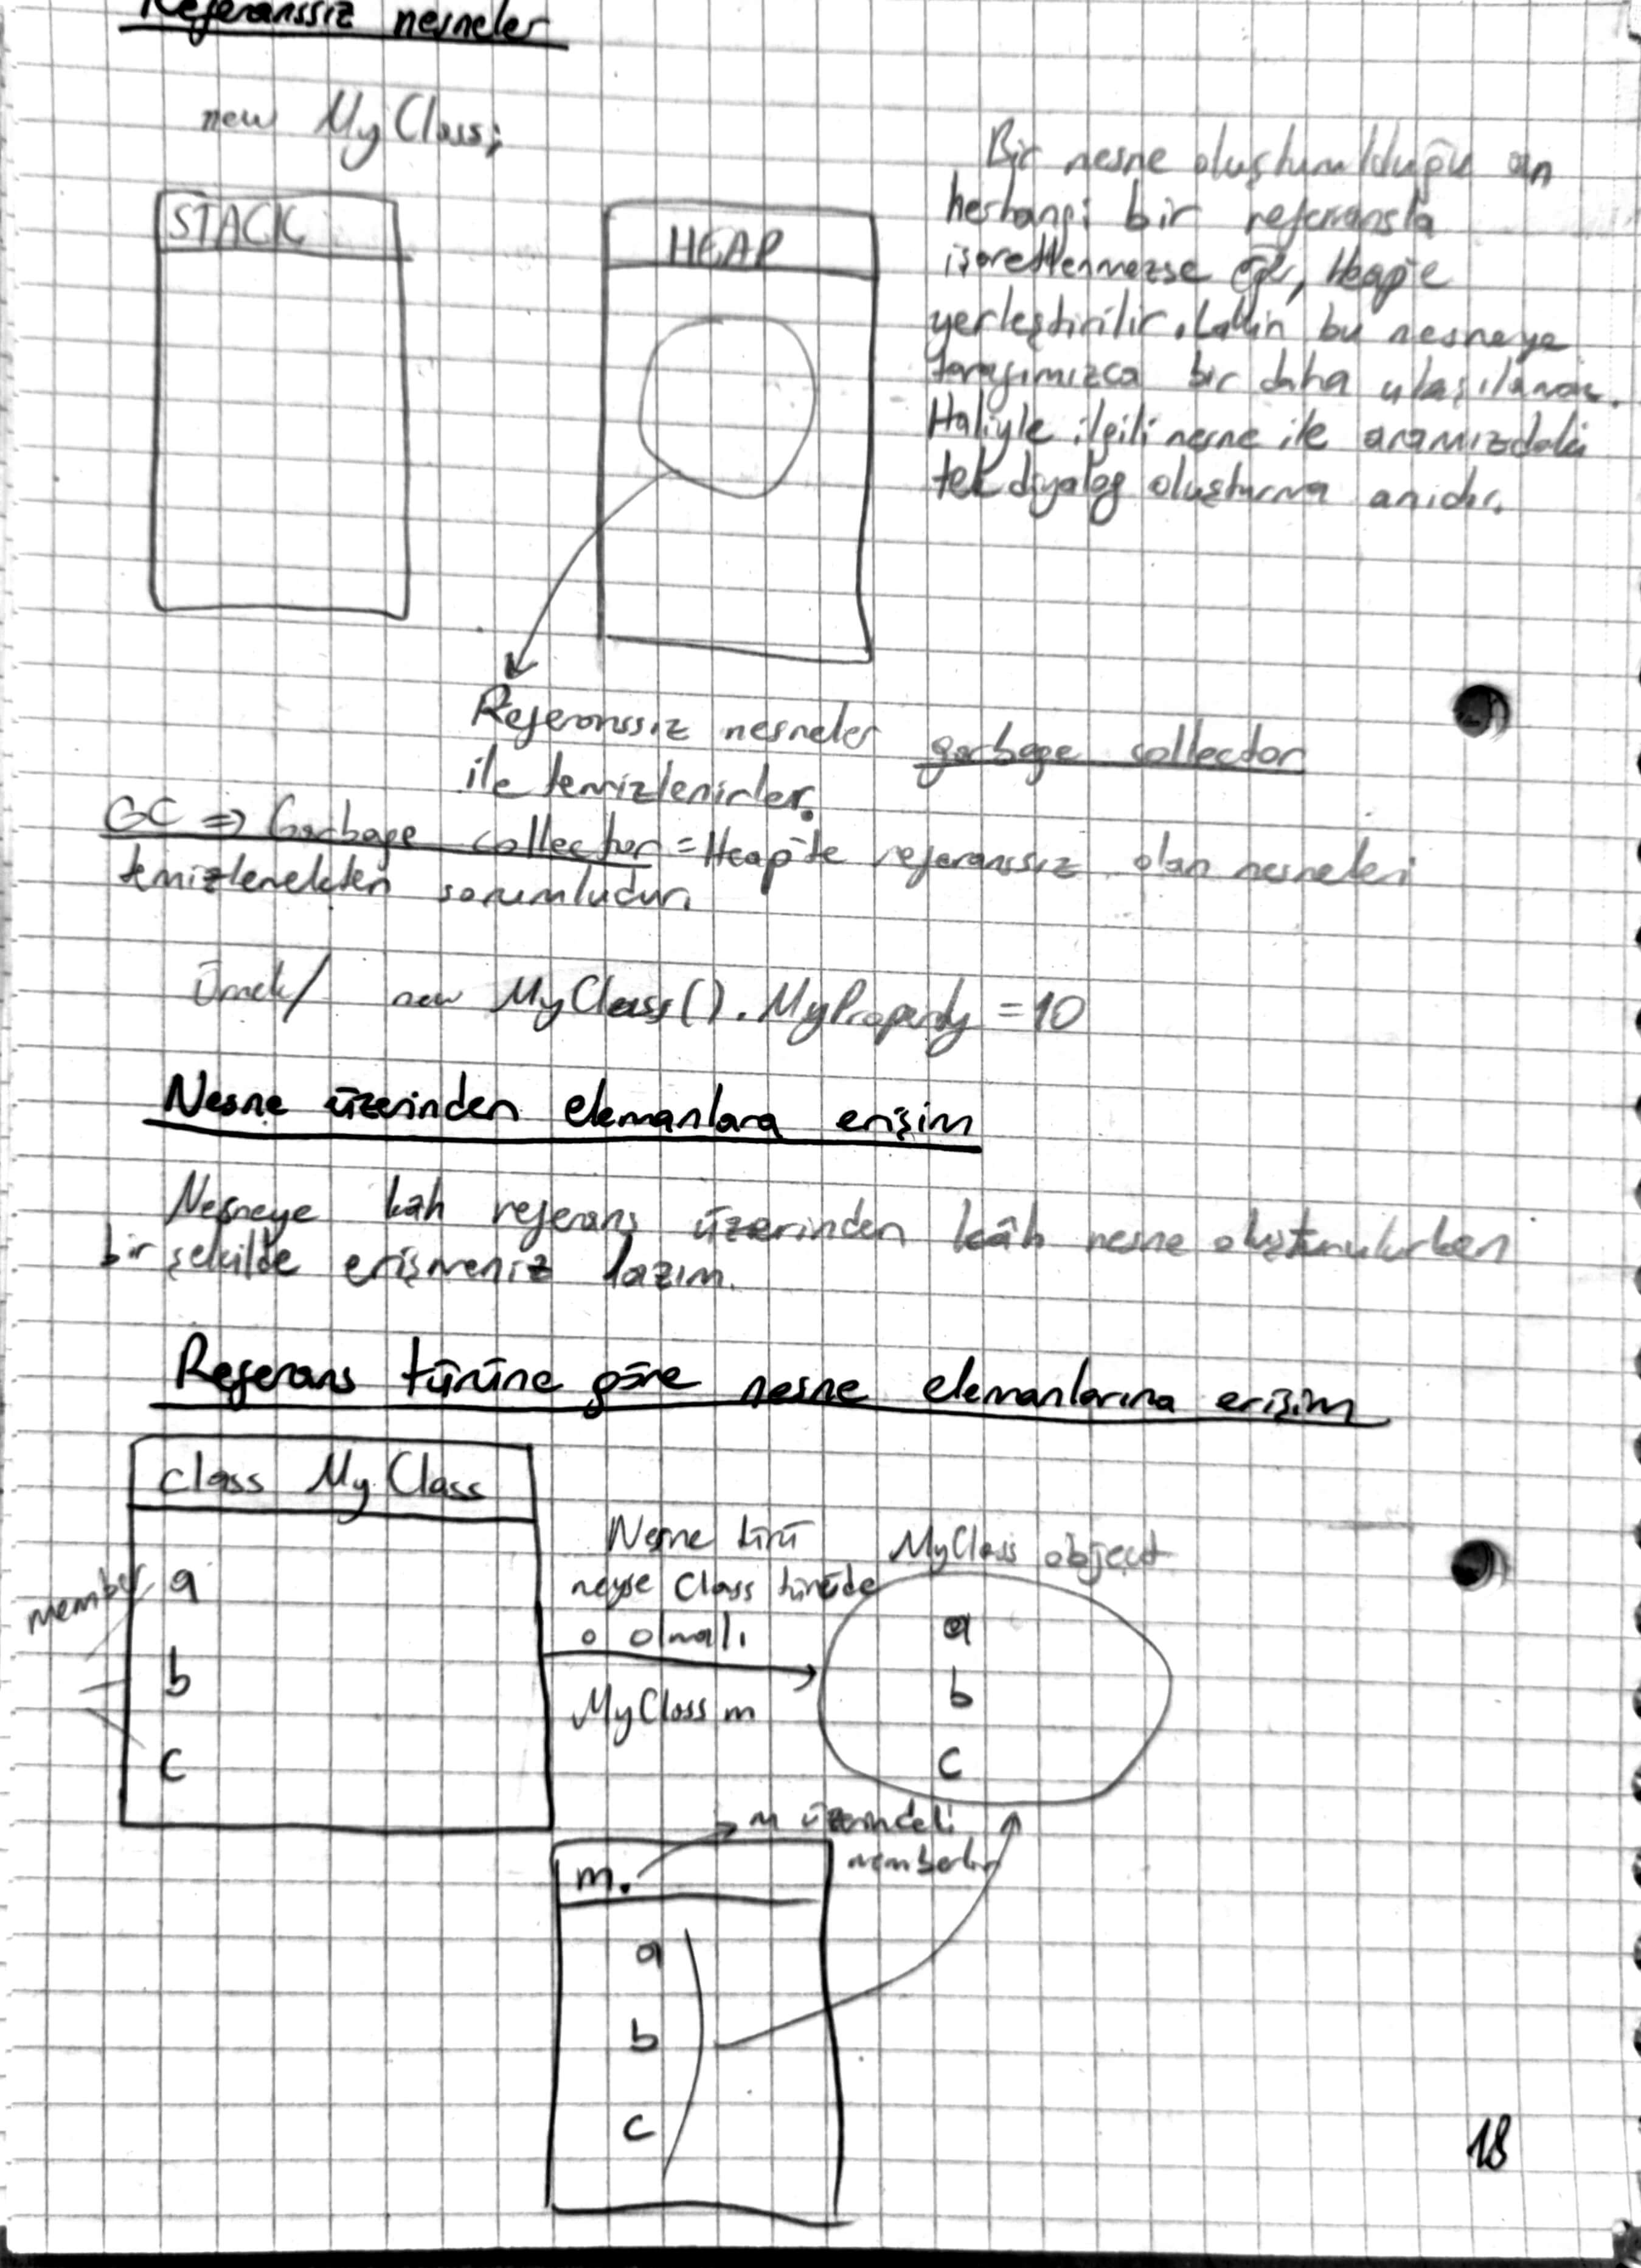 Referanssız nesneler
new MyClass;
STACK
HEAP
Bir nesne oluşturulduğu an
herhangi bir referansla
işaretlenmezse eğer, Heap'e
yerleştirilir. Lakin bu nesneye
tarafımızca bir daha ulaşılamaz.
Haliyle ilgili nesne ile aramızdaki
tek diyalog oluşturma anıdır.
Referanssız nesneler garbage collector
ile temizlenirler.
GC => Garbage collector = Heap'te referanssız olan nesneleri
temizlemekten sorumludur.
Örnek/ new MyClass().MyProperty = 10
Nesne üzerinden elemanlara erişim
Nesneye kâh referans üzerinden kâh nesne oluşturulurken
bir şekilde erişmeniz lazım.
Referans türüne göre nesne elemanlarına erişim
class MyClass
member
a
b
c
Nesne türü
neyse Class türüde
o olmalı
MyClass m
MyClass object
a
b
c
m üzerindeki
memberlar
m.
a
b
c
18